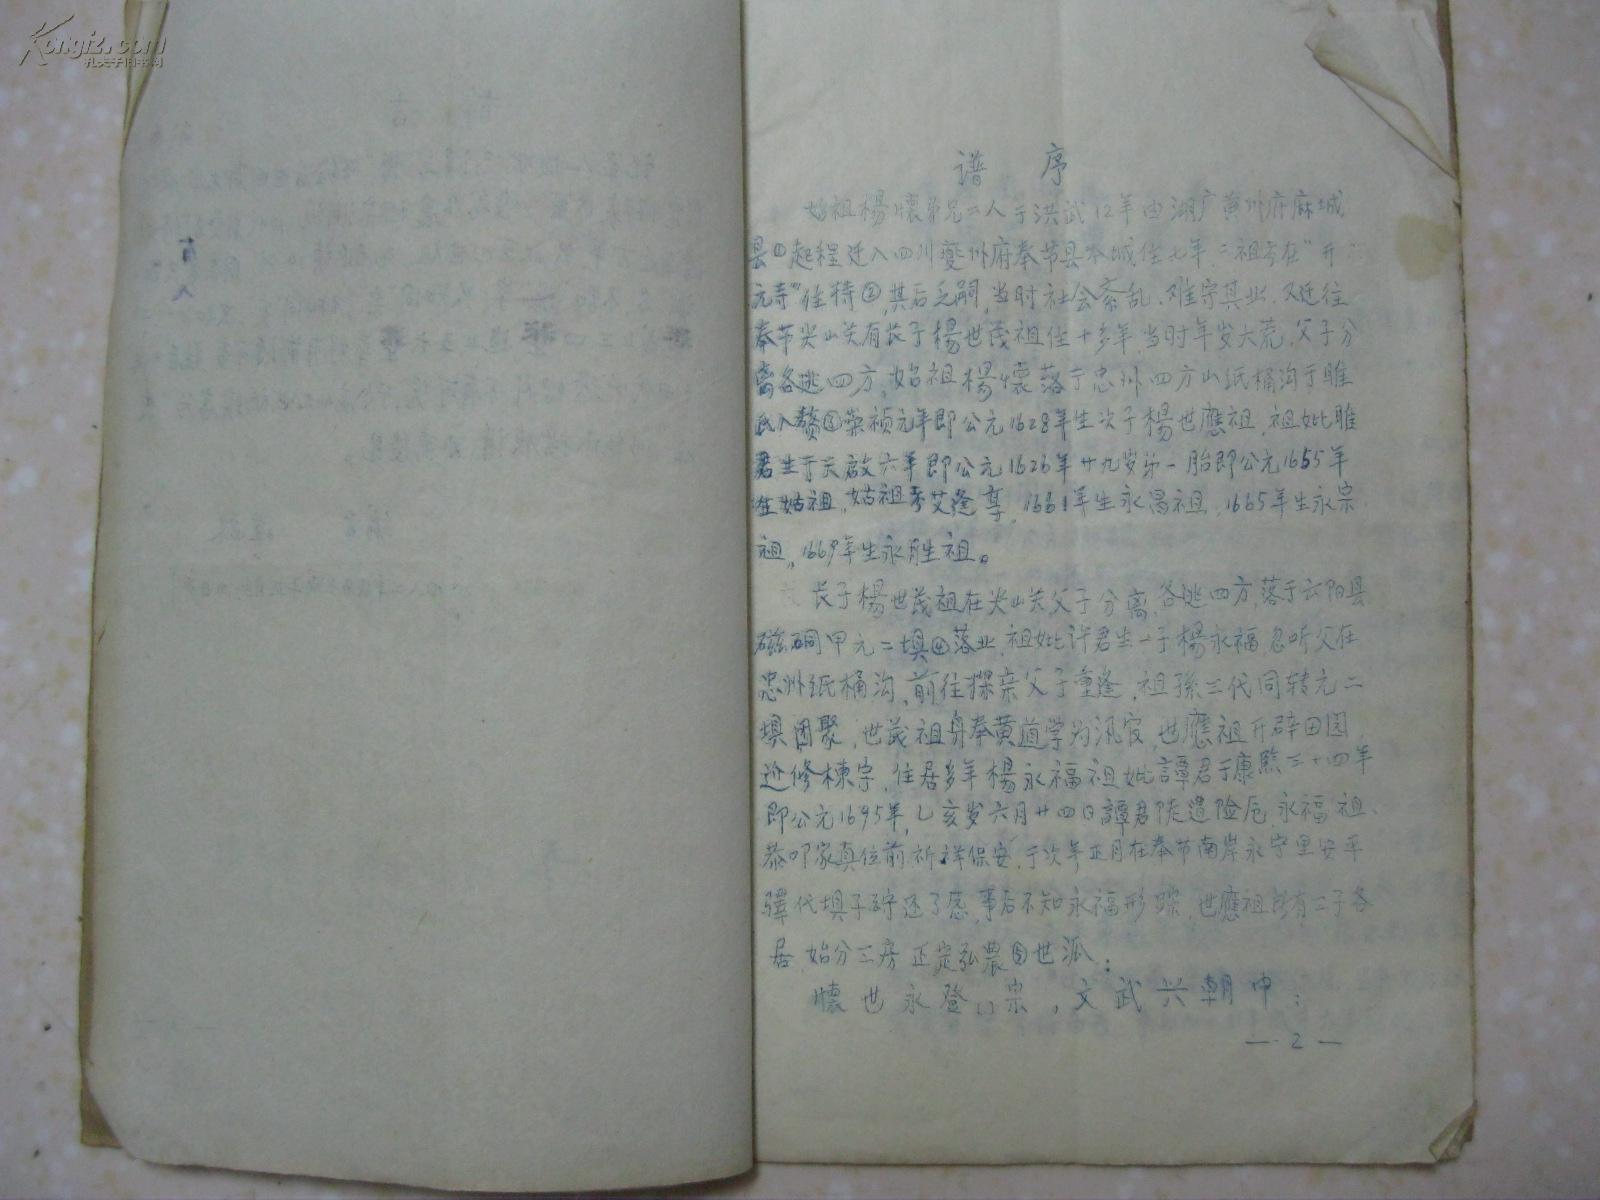 Kongfz.com
孔夫子旧书网
谱 序
始祖楊懷弟兄二人于洪武12年由湖广黄州府麻城
县①起程迁入四川夔州府奉节县本城住七年,二祖考在"开
元寺"住持②,其后乏嗣,当时社会紊乱,难守其业,又迁往
奉节尖山关有长子楊世茂祖住十多年,当时年岁大荒,父子分
离各逃四方,始祖楊懷落于忠州四方山纸桶沟于睢
氏入赘③崇祯元年即公元1628年生次子楊世應祖,祖妣睢
君生于天啟六年即公元1626年廿九岁第一胎即公元1655年
生姑祖,姑祖考艾逢享,1661年生永昌祖,1665年生永宗
祖,1669年生永胜祖。
长子楊世茂祖在尖山关父子分离,各逃四方,落于云阳县
磁硐甲元二填④落业,祖妣许君生一子楊永福,忽听父在
忠州纸桶沟,前往探亲父子重逢,祖孫三代同转元二
填团聚,世茂祖身奉黄道学为汛官,世應祖开辟田园
造修棟宇,住居多年楊永福祖妣譚君于康熙三十四年
即公元1695年,乙亥岁六月廿四日譚君陡遭险厄,永福祖
恭叩家真位前祈祥保安,于次年正月在奉节南岸永宁里安平
驿代填子 还了愿,事后不知永福形踪,世應祖所有三子各
居,始分三房正定弘農⑤世派:
懷世永登 宗,文武兴朝中;
— 2 —